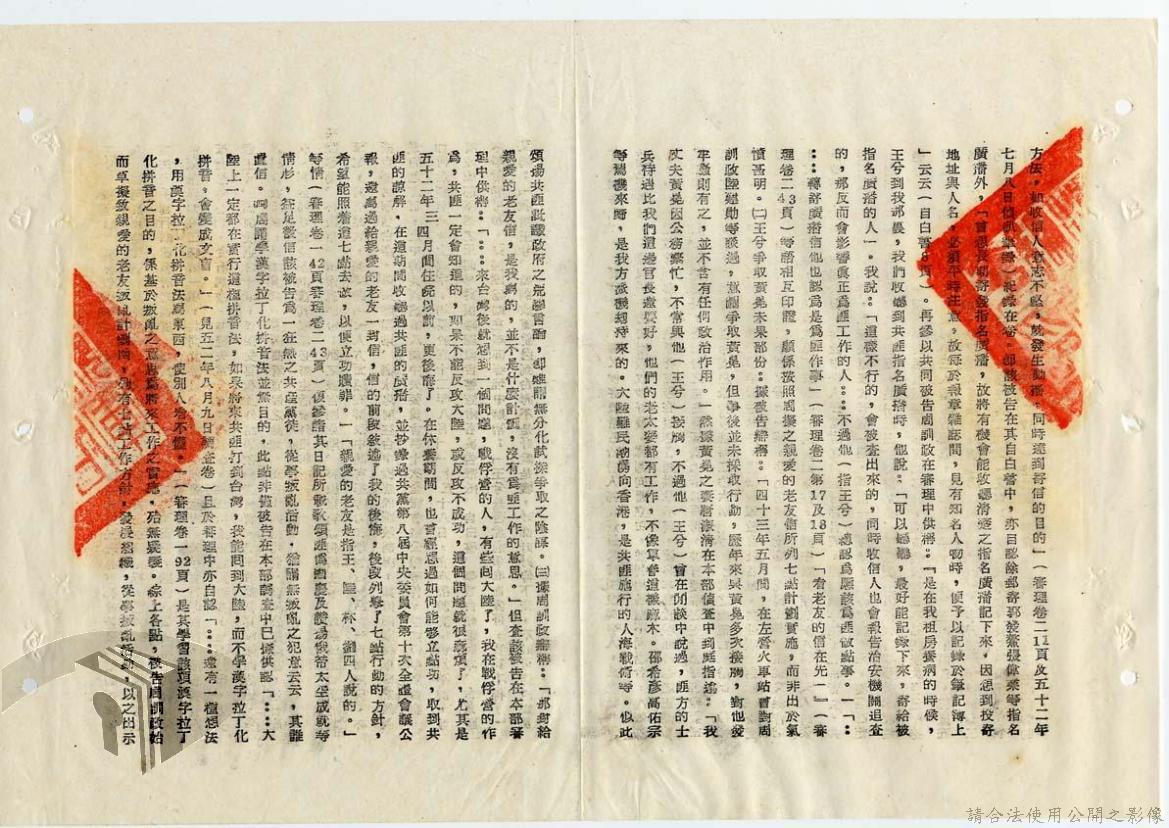 方法，如收信人意志不堅，就發生動搖，同時達到寄信的目的」（審理卷二11頁及五十二年
七月八日偵訊筆錄）紀錄在卷。即該被告在其自白書中，亦自認除郵寄郭
廣播外，「曾想投郵寄發指名廣播，故將有機會能收聽清楚之指名廣播記下來，因想到投寄
地址與人名，必須平時注意，故每於報章雜誌間，見有知名人物時，便予以記錄於筆記簿上
」云云（自白書8頁）。再參以共同被告周訓政在審理中供稱：「是在我租房養病的時候，
王兮到我那裏，我們收聽到共匪指名廣播時，他說：「可以聽聽，最好能記錄下來，寄給被
指名廣播的人」。我說：「這樣不行的，會被查出來的，同時收信人也會報告治安機關追查
的，那反而會影響真正為匪工作的人…不過他（指王兮）總認為應該為匪做點事。」「…
…郵寄廣播信他也認為是為匪作事」（審理卷二第17及18頁）「看老友的信在先」」（審
理卷二243頁）等語相互印證，顯係按照周擬之親愛的老友信所列七點計劃實施，而非出於氣
憤甚明。㈡王兮爭取黃晃未果部份：據被告辯稱：「四十三年五月間，在左營火車站曾對周
訓政陸建勛等談過，意圖爭取黃晃，但事後並未採取行動，歷年來與黃晃多次接觸，對他發
牢騷則有之，並不含有任何政治作用。」然據黃晃之妻
在本部偵查中到庭指證：「我
丈夫黃晃因公務繁忙，不常與他（王兮）接觸，不過他（王兮）曾在閒談中說過，匪方的士
兵待過比我們這邊官長還要好，他們的老太婆都有工作，不像軍眷這樣麻木。邵希彥高佑宗
等駕機來歸，是我方派機劫持來的。大陸難民潮湧向香港，是共匪施行的人海戰術等。似此
頌揚共匪詆譭政府之荒謬言論，即難謂無分化試探爭取之陰謀。㈢據周訓政辯稱：「那封給
親愛的老友信，是我寫的，並不是什麼計劃，沒有為匪工作的意思。」但查該被告在本部審
理中供稱：「…來台灣後就想到一個問題，戰俘營的人，有些回大陸了，我在戰俘營的作
為，共匪一定會知道的，如果不能反攻大陸，或反攻不成功，這個問題就很嚴重了，尤其是
五十二年三、四月間住院以前，更後悔了。在休養期間，也曾想過如何能夠立點功，取到共
匪的諒解，在這期間收聽過共匪的廣播，並抄錄過共黨第八屆中央委員會第十次全體會議公
報，還寫過給親愛的老友一封信，信的前段敘述了我的後悔，後段列舉了七點行動的方針，
希望能照着這七點去做，以便立功贖罪。」「親愛的老友是指王、陸、林、劉四人說的。」
等情（審理卷一42頁審理卷二43頁）復參諸其日記所載歌頌匪偽國慶及讚揚俄酋太空成就等
情形，益足徵信該被告為一狂熱之共產黨徒，從事叛亂活動，猶謂無叛亂之犯意云云，其誰
置信。㈣周謂學漢字拉丁化拼音法並無目的，此點非僅被告在本部偵查中已據供認「…大
陸上一定都在實行這種拼音法，如果將來共匪打到台灣，我能回到大陸，而不學漢字拉丁化
拼音，會變成文盲。」（見五二年八月九日偵查卷）且於審理中亦自認「…還有一種想法
，用漢字拉丁化拼音法寫東西，使別人看不懂。」（審理卷一92頁）是其學習該項漢字拉丁
化拼音之目的，係基於叛亂之意思為將來工作之需要，殆無疑義。綜上各點，被告周訓政始
而草擬致親愛的老友叛亂計劃信，列有七點工作方針，
從事叛亂活動，以之出示
請合法使用公開之影像